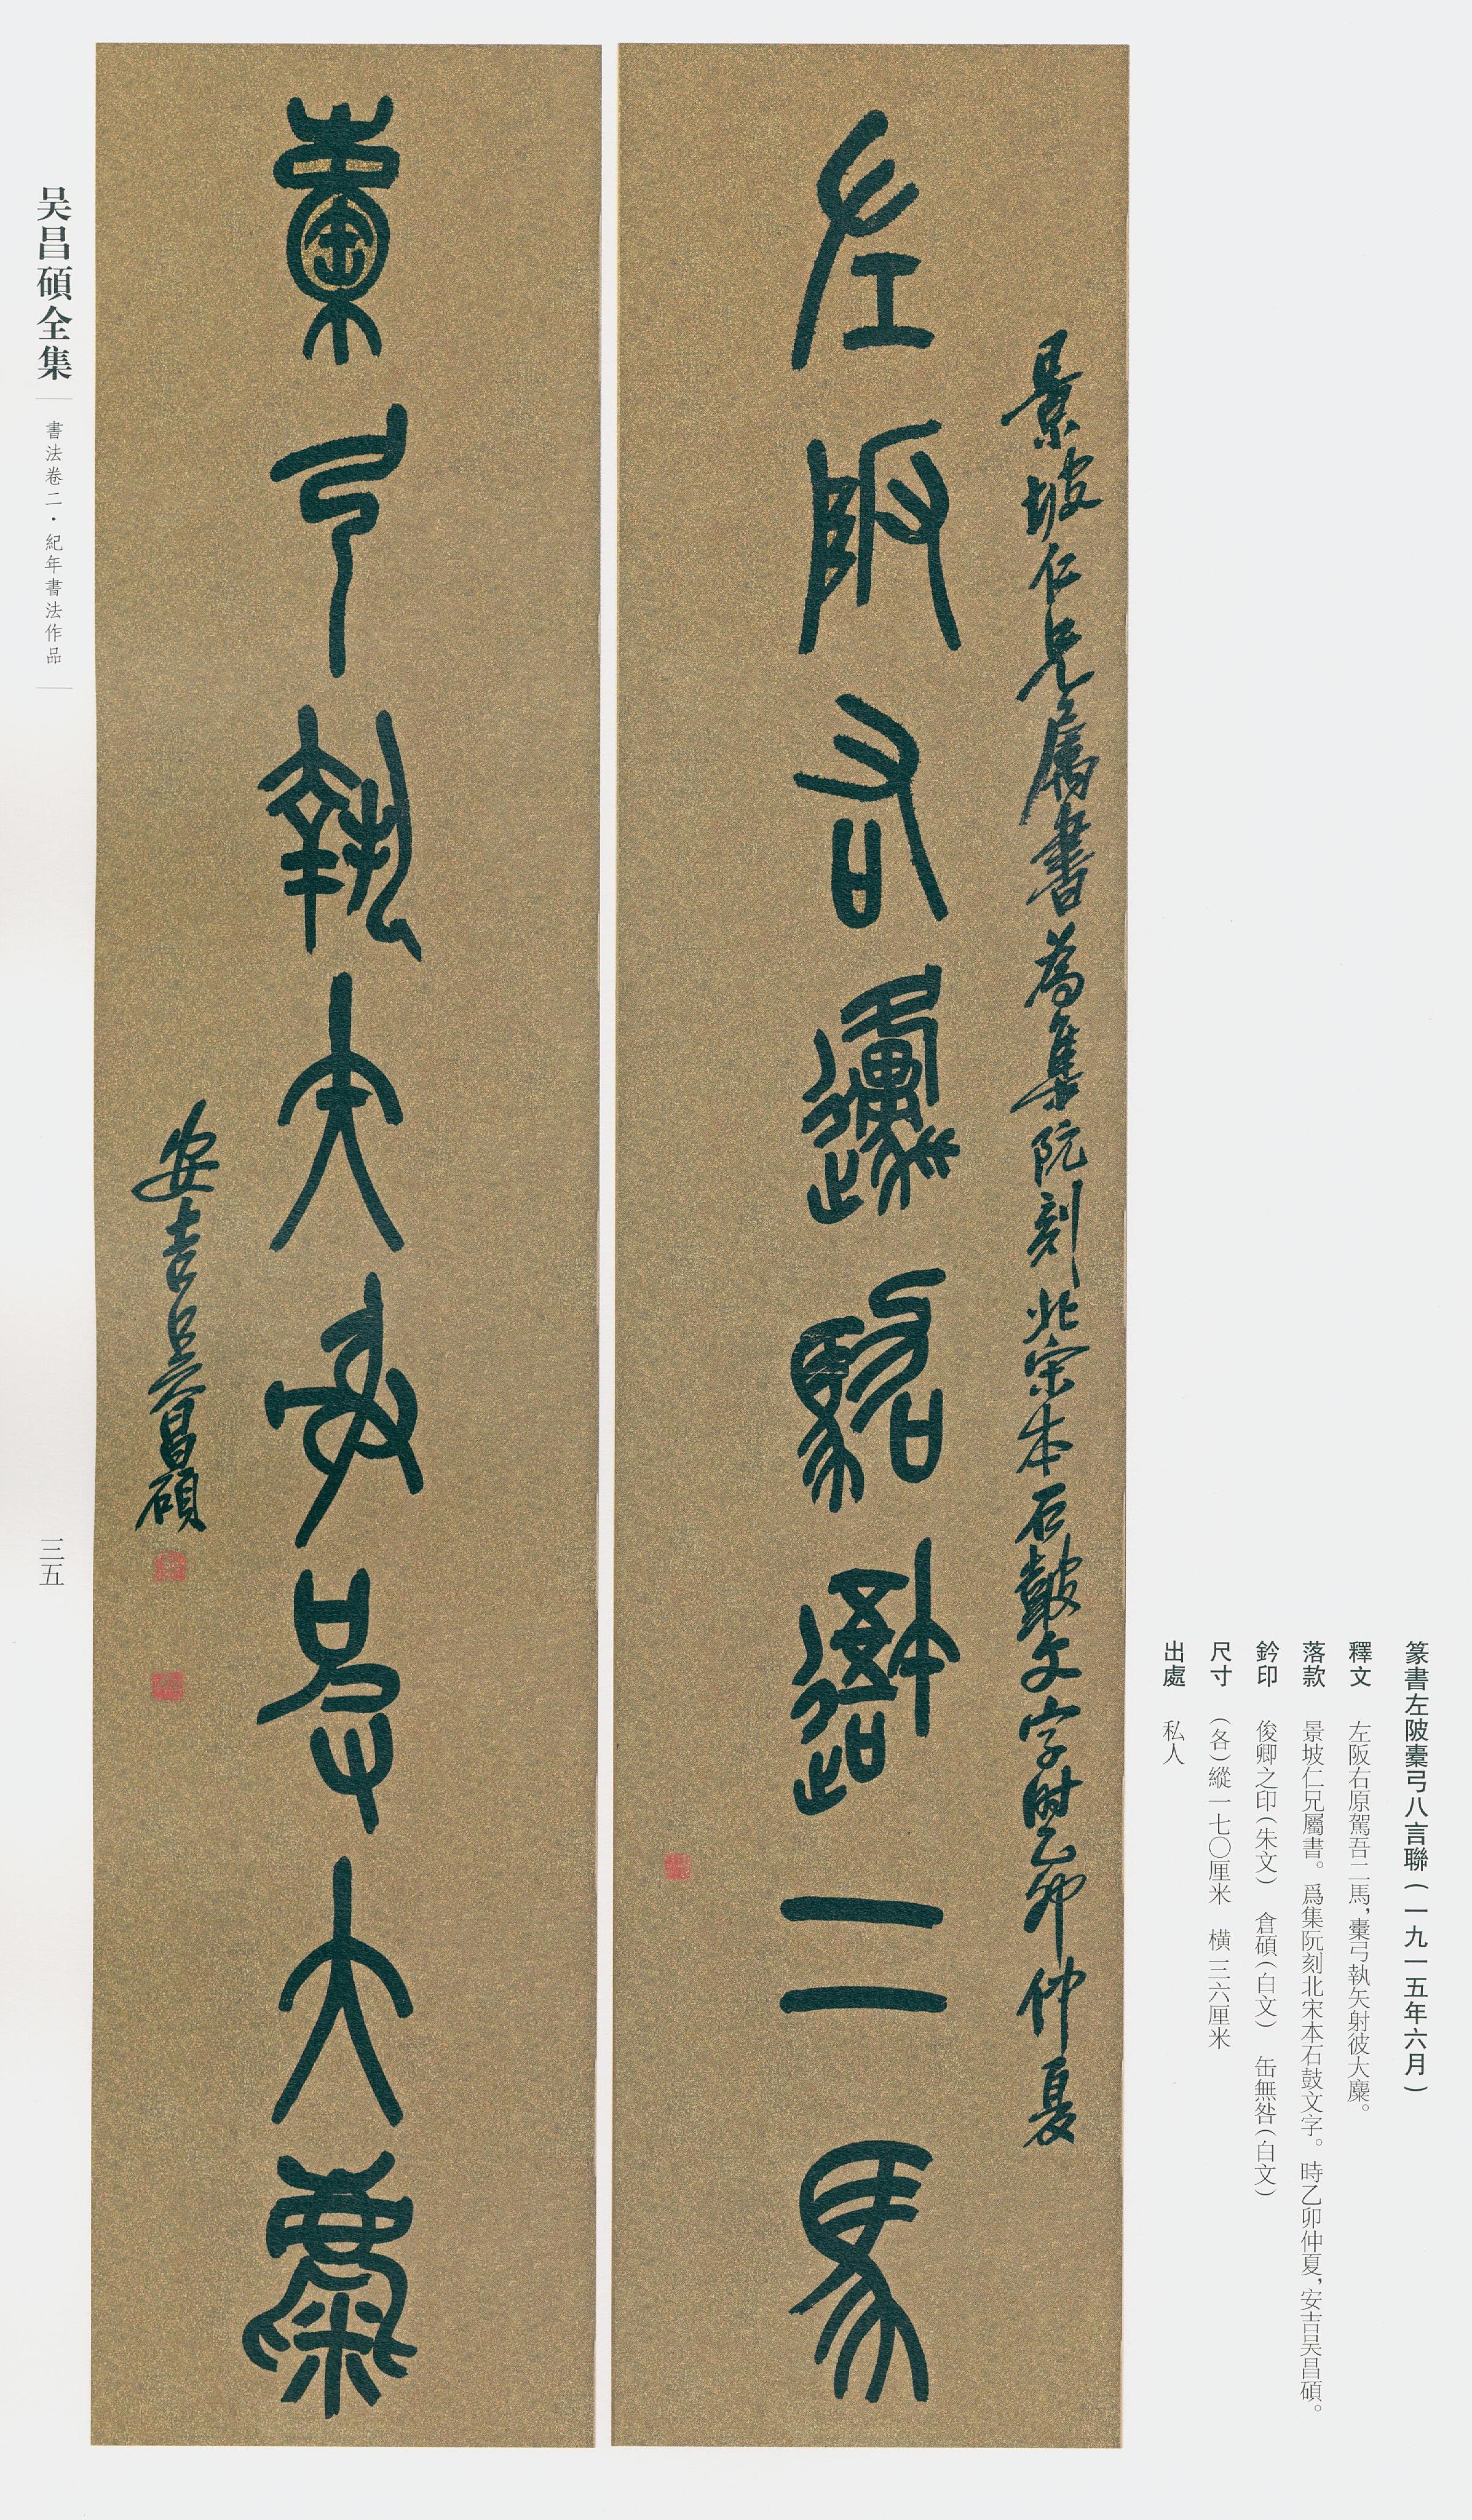 篆書左陂櫜弓八言聯(一九一五年六月)
釋文 左阪右原駕吾二馬,櫜弓執矢射彼大麋。
落款 景坡仁兄屬書。爲集阮刻北宋本石鼓文字。時乙卯仲夏,安吉吴昌碩。
鈐印 俊卿之印(朱文) 倉碩(白文) 缶無咎(白文)
尺寸 (各)縱一七〇厘米 横三六厘米
出處 私人
景坡仁兄屬書為集阮刻北宋本石鼓文字時乙卯仲夏
左陂右邍駕䢸二馬
櫜弓執矢射彼大麋
安吉吴昌碩
吴昌碩全集
書法卷二·紀年書法作品
三五